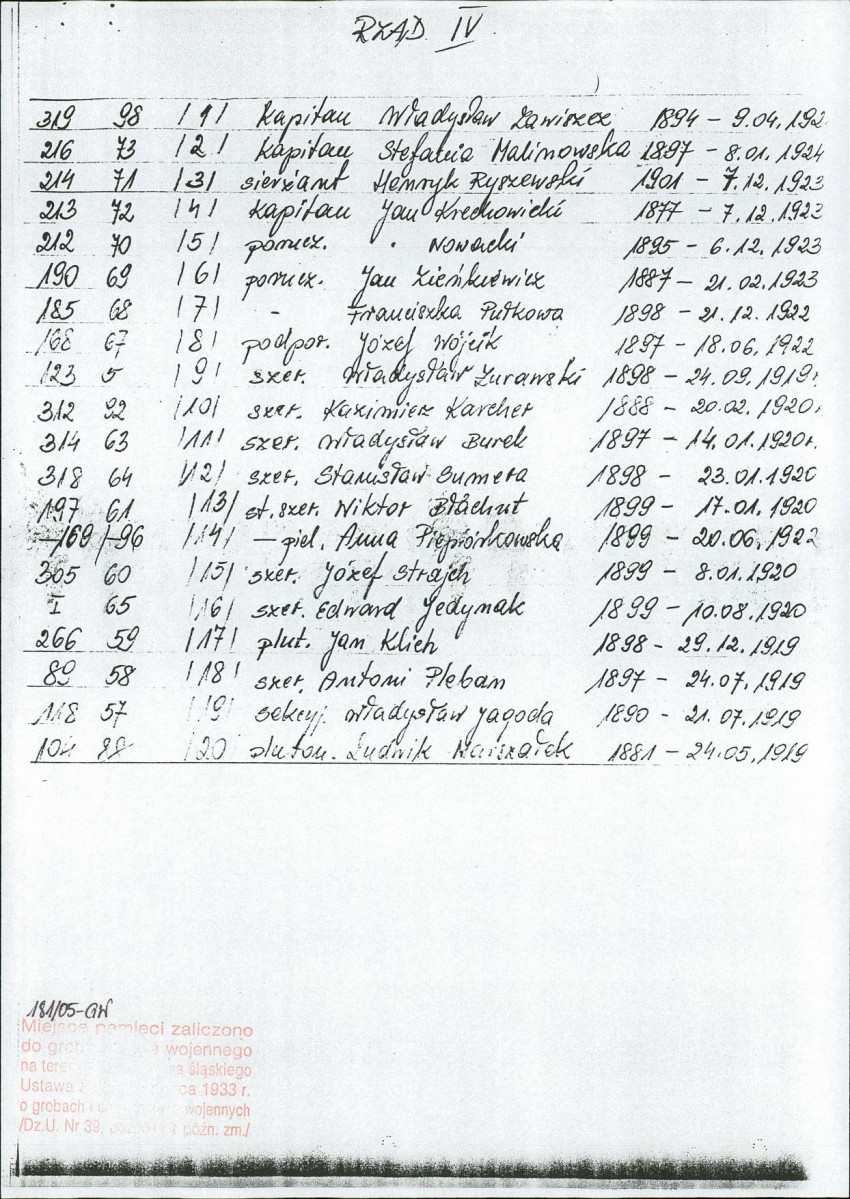 RZĄD IV
319 98 /1/ Kapitan Władysław Zawiszez 1894 – 9.04.192
216 73 /2/ Kapitan Stefania Malinowska 1897 – 8.01.1924
214 71 /3/ sierżant Henryk Ryszewski 1901 – 7.12.1923
213 72 /4/ Kapitan Jan Krechowicki 1877 – 7.12.1923
212 70 /5/ porucz. . Nowacki 1895 – 6.12.1923
190 69 /6/ porucz. Jan Zieńkiewicz 1887 – 21.02.1923
185 68 /7/ - Franciszka Pułkowa 1898 – 21.12.1922
168 67 /8/ podpor. Józef Wójcik 1897 – 18.06.1922
123 5 /9/ szer. Władysław Żurawski 1898 – 24.09.1919r.
312 92 /10/ szer. Kazimierz Karcher 1888 – 20.02.1920r
314 63 /11/ szer. Władysław Burek 1897 – 14.01.1920r.
318 64 /12/ szer. Stanisław Sumera 1898 – 23.01.1920
197 61 /13/ st.szer. Wiktor Błachut 1899 – 17.01.1920
–169 /–96 /14/ – piel. Anna Piepiórkowska 1899 – 20.06.1922
305 60 /15/ szer. Józef Strajch 1899 – 8.01.1920
I 65 /16/ szer. Edward Jedynak 1899 – 10.08.1920
266 59 /17/ plut. Jan Klich 1898 – 29.12.1919
89 58 /18/ szer. Antoni Pleban 1897 – 24.07.1919
118 57 /19/ sekcyj. Władysław Jagoda 1890 – 21.07.1919
104 88 /20/ pluton. Ludwik Marszałek 1881 – 24.05.1919
181/05-GW
Miejsce pamięci zaliczono
do wojennego
na śląskiego
Ustawa 1933 r.
o grobach i wojennych
/Dz.U. Nr 39, z późn. zm./